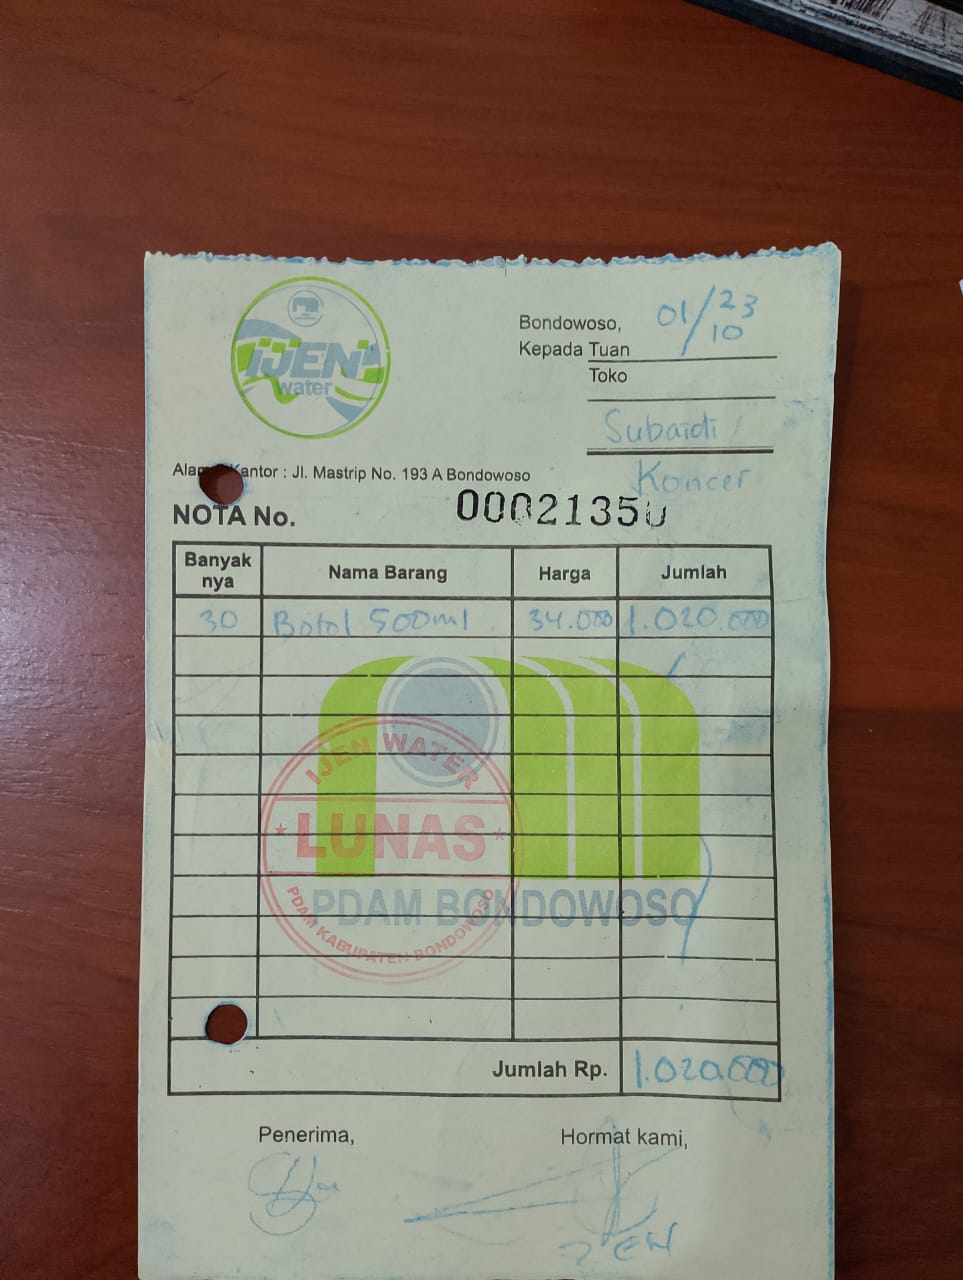 IJEN
water
Bondowoso, 01/10 23
Kepada Tuan
Toko
Subaidi /
Koncer
Kantor : Jl. Mastrip No. 193 A Bondowoso
NOTA No. 00021350
Banyak nya Nama Barang Harga Jumlah
30 Botol 500ml 34.000 1.020.000
IJEN WATER
LUNAS
PDAM KABUPATEN BONDOWOSO
PDAM BONDOWOSO
Jumlah Rp. 1.020.000
Penerima, Hormat kami,